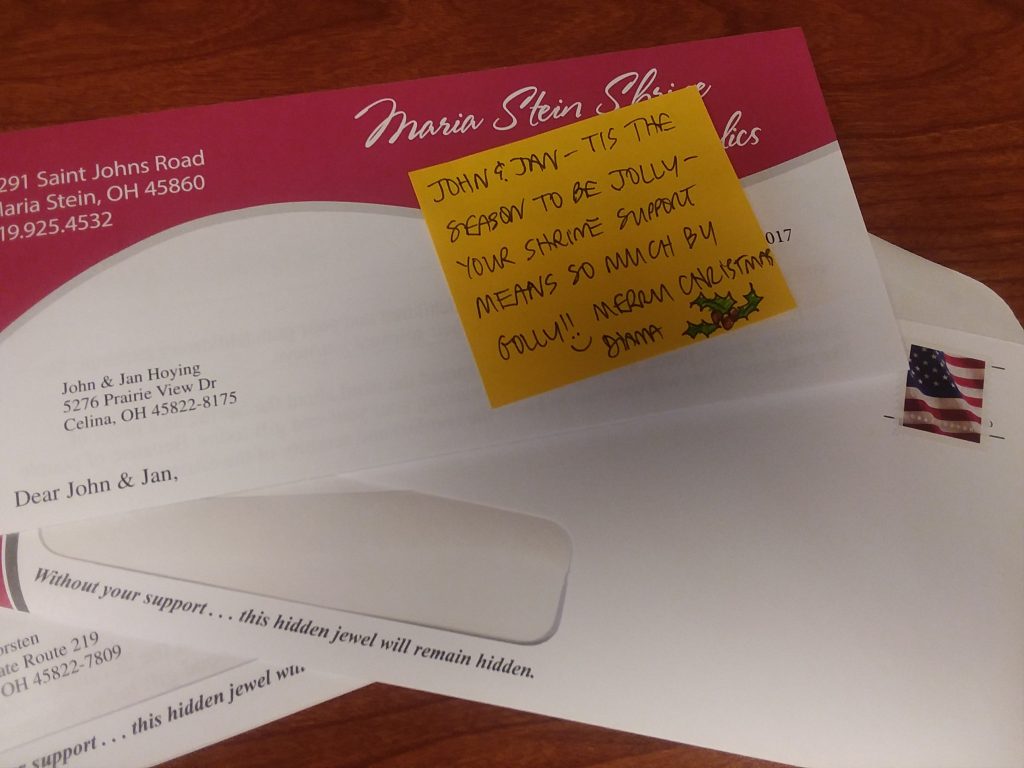 Maria Stein Shrine
lics
291 Saint Johns Road
Maria Stein, OH 45860
19.925.4532
JOHN & JAN - TIS THE
SEASON TO BE JOLLY -
YOUR SHRINE SUPPORT
MEANS SO MUCH BY
GOLLY!! MERRY CHRISTMAS
017
John & Jan Hoying
5276 Prairie View Dr
Celina, OH 45822-8175
Dear John & Jan,
Without your support . . . this hidden jewel will remain hidden.
orsten
ate Route 219
OH 45822-7809
support . . . this hidden jewel wil